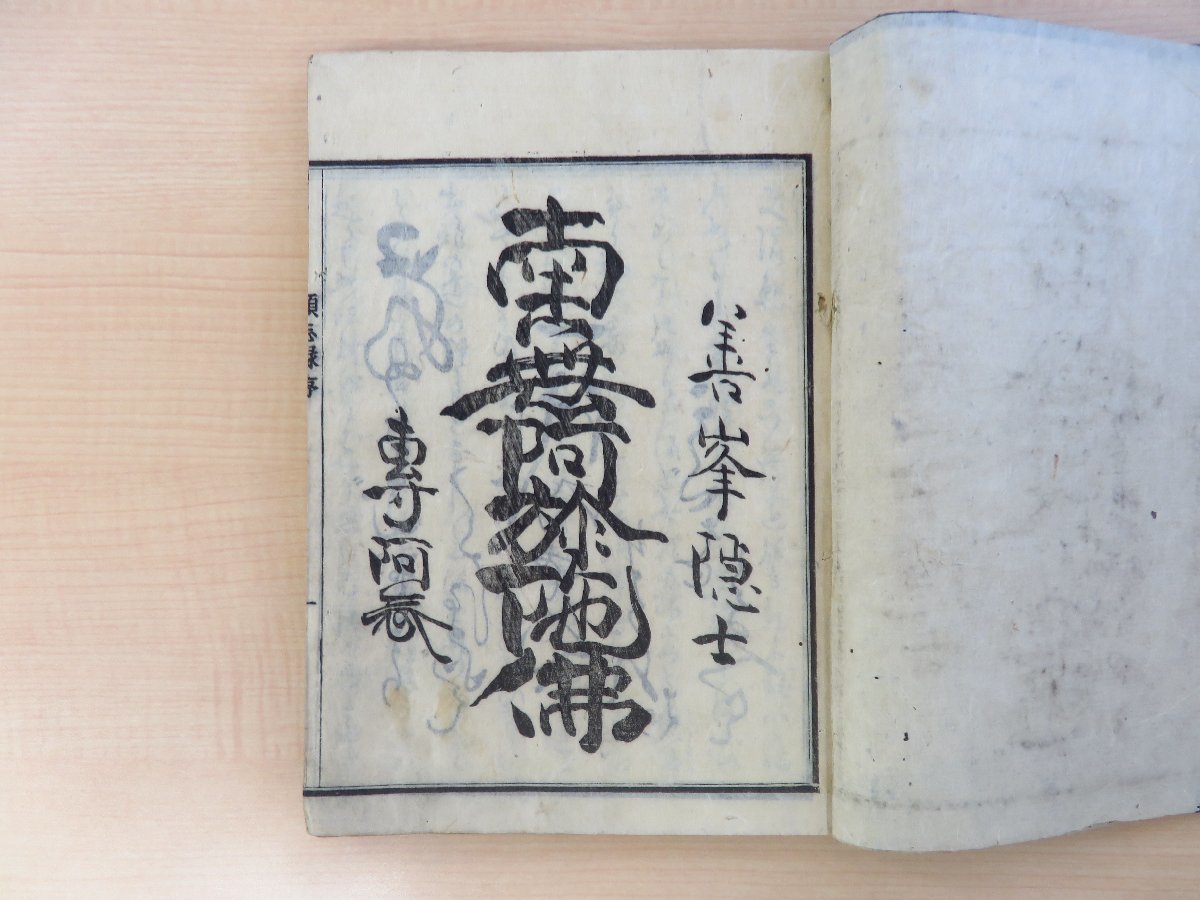 善峯隠士
南無阿弥陀佛
專阿